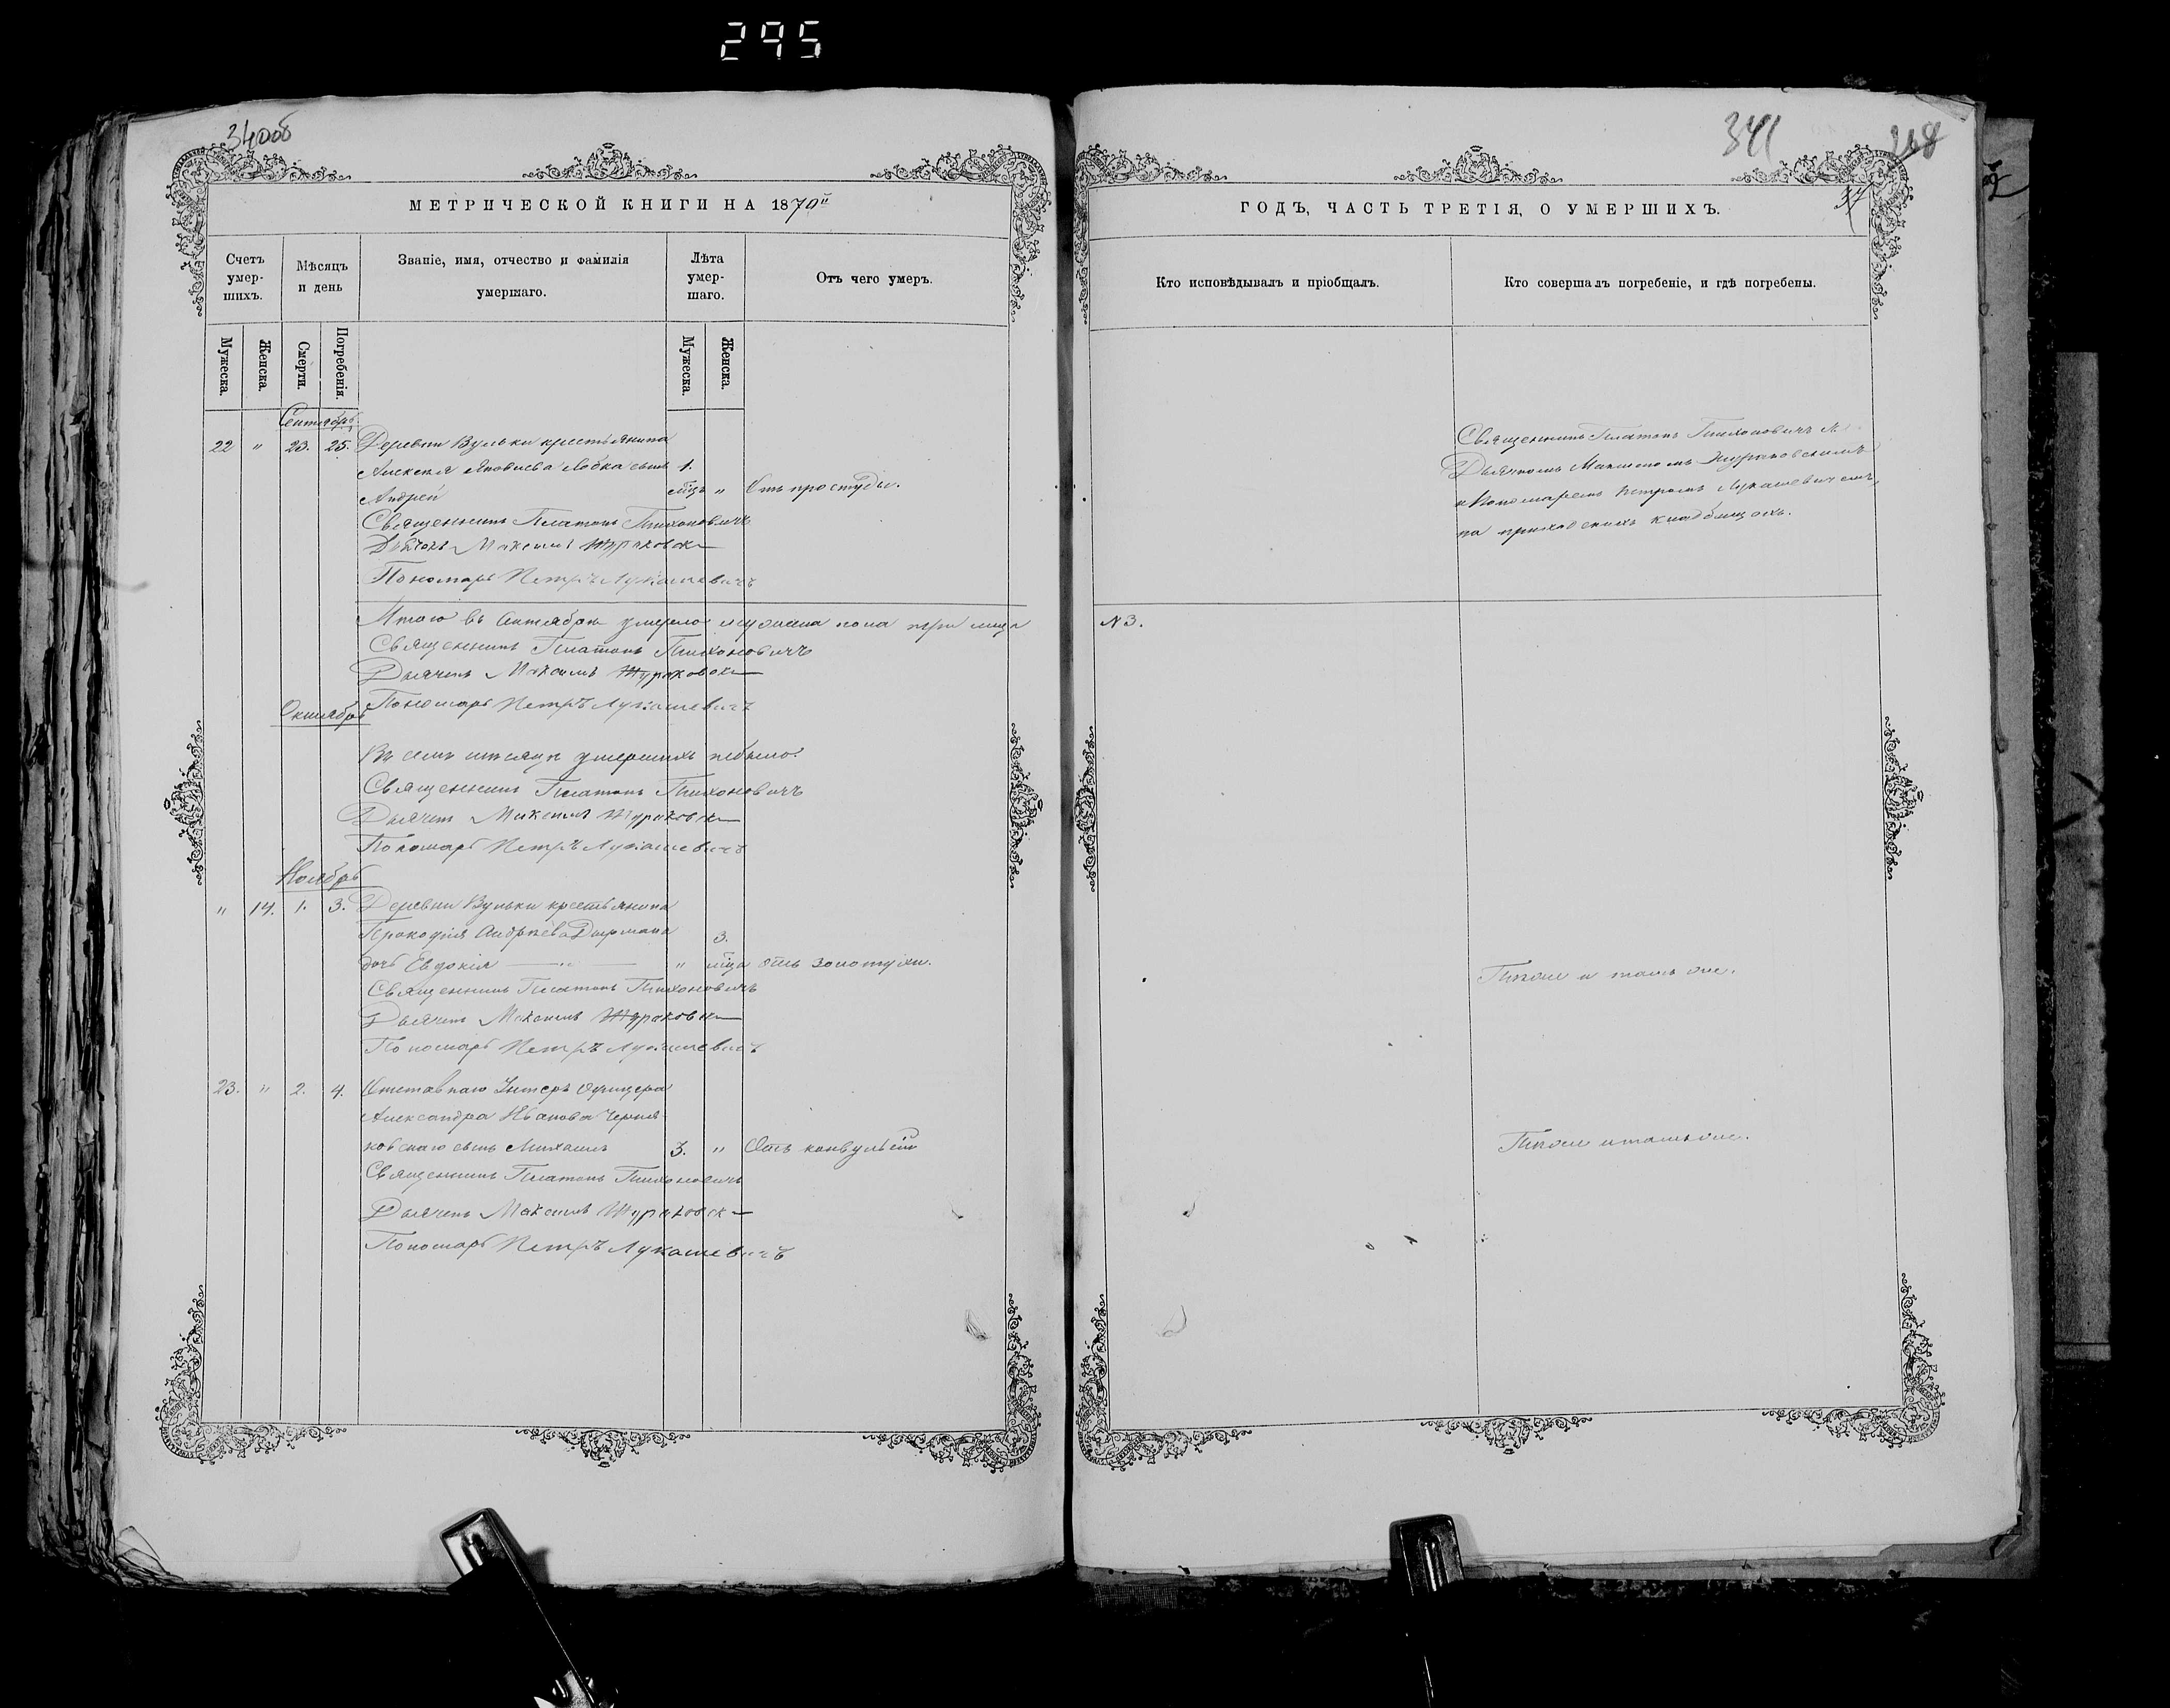 295
340об
МЕТРИЧЕСКОЙ КНИГИ НА 1870й
Счетъ умер-шихъ.
Мѣсяцъ и день
Званіе, имя, отчество и фамилія умершаго.
Лѣта умер-шаго.
Отъ чего умеръ.
Мужеска.
Женска.
Смерти.
Погребенія.
Мужеска.
Женска.
Сентябрь
22 " 23. 25. Деревни Вульки крестьянина
Алексѣя Яковлева сынъ 1.
Андрей мѣць " Отъ простуды.
Священникъ Платонъ Тихоновичъ
Дьячокъ Максимъ Жураковск
Пономарь Петръ Лукашевичъ
Итого въ Сентябрѣ умерло мужеска пола три лица
Священникъ Платонъ Тихоновичъ
Дьячекъ Максимъ Жураковск
Пономарь Петръ Лукашевичъ
Октябрь
Въ семъ мѣсяцѣ умершихъ небыло.
Священникъ Платонъ Тихоновичъ
Дьячекъ Максимъ Жураковск
Пономарь Петръ Лукашевичъ
Ноябрь
" 14. 1. 3. Деревни Вульки крестьянина
Прокофія Андреева 3.
дочь Евдокія " " мѣца отъ золотухи.
Священникъ Платонъ Тихоновичъ
Дьячекъ Максимъ Жураковск
Пономарь Петръ Лукашевичъ
23. " 2. 4. Отставнаго Унтеръ Офицера
Александра Иванова Черня
ковскаго сынъ Михаилъ 3. " Отъ конвульсій
Священникъ Платонъ Тихоновичъ
Дьячекъ Максимъ Жураковск
Пономарь Петръ Лукашевичъ
341
37
ГОДЪ, ЧАСТЬ ТРЕТІЯ, О УМЕРШИХЪ.
Кто исповѣдывалъ и пріобщалъ.
Кто совершалъ погребеніе, и гдѣ погребены.
Священникъ Платонъ Тихоновичъ
Дьячкомъ Максимомъ Жураковскимъ
и Пономаремъ Петромъ Лукашевичемъ,
на приходскихъ кладбищахъ.
N 3.
Тѣмже и тамъ же.
Тѣмже и тамъже.